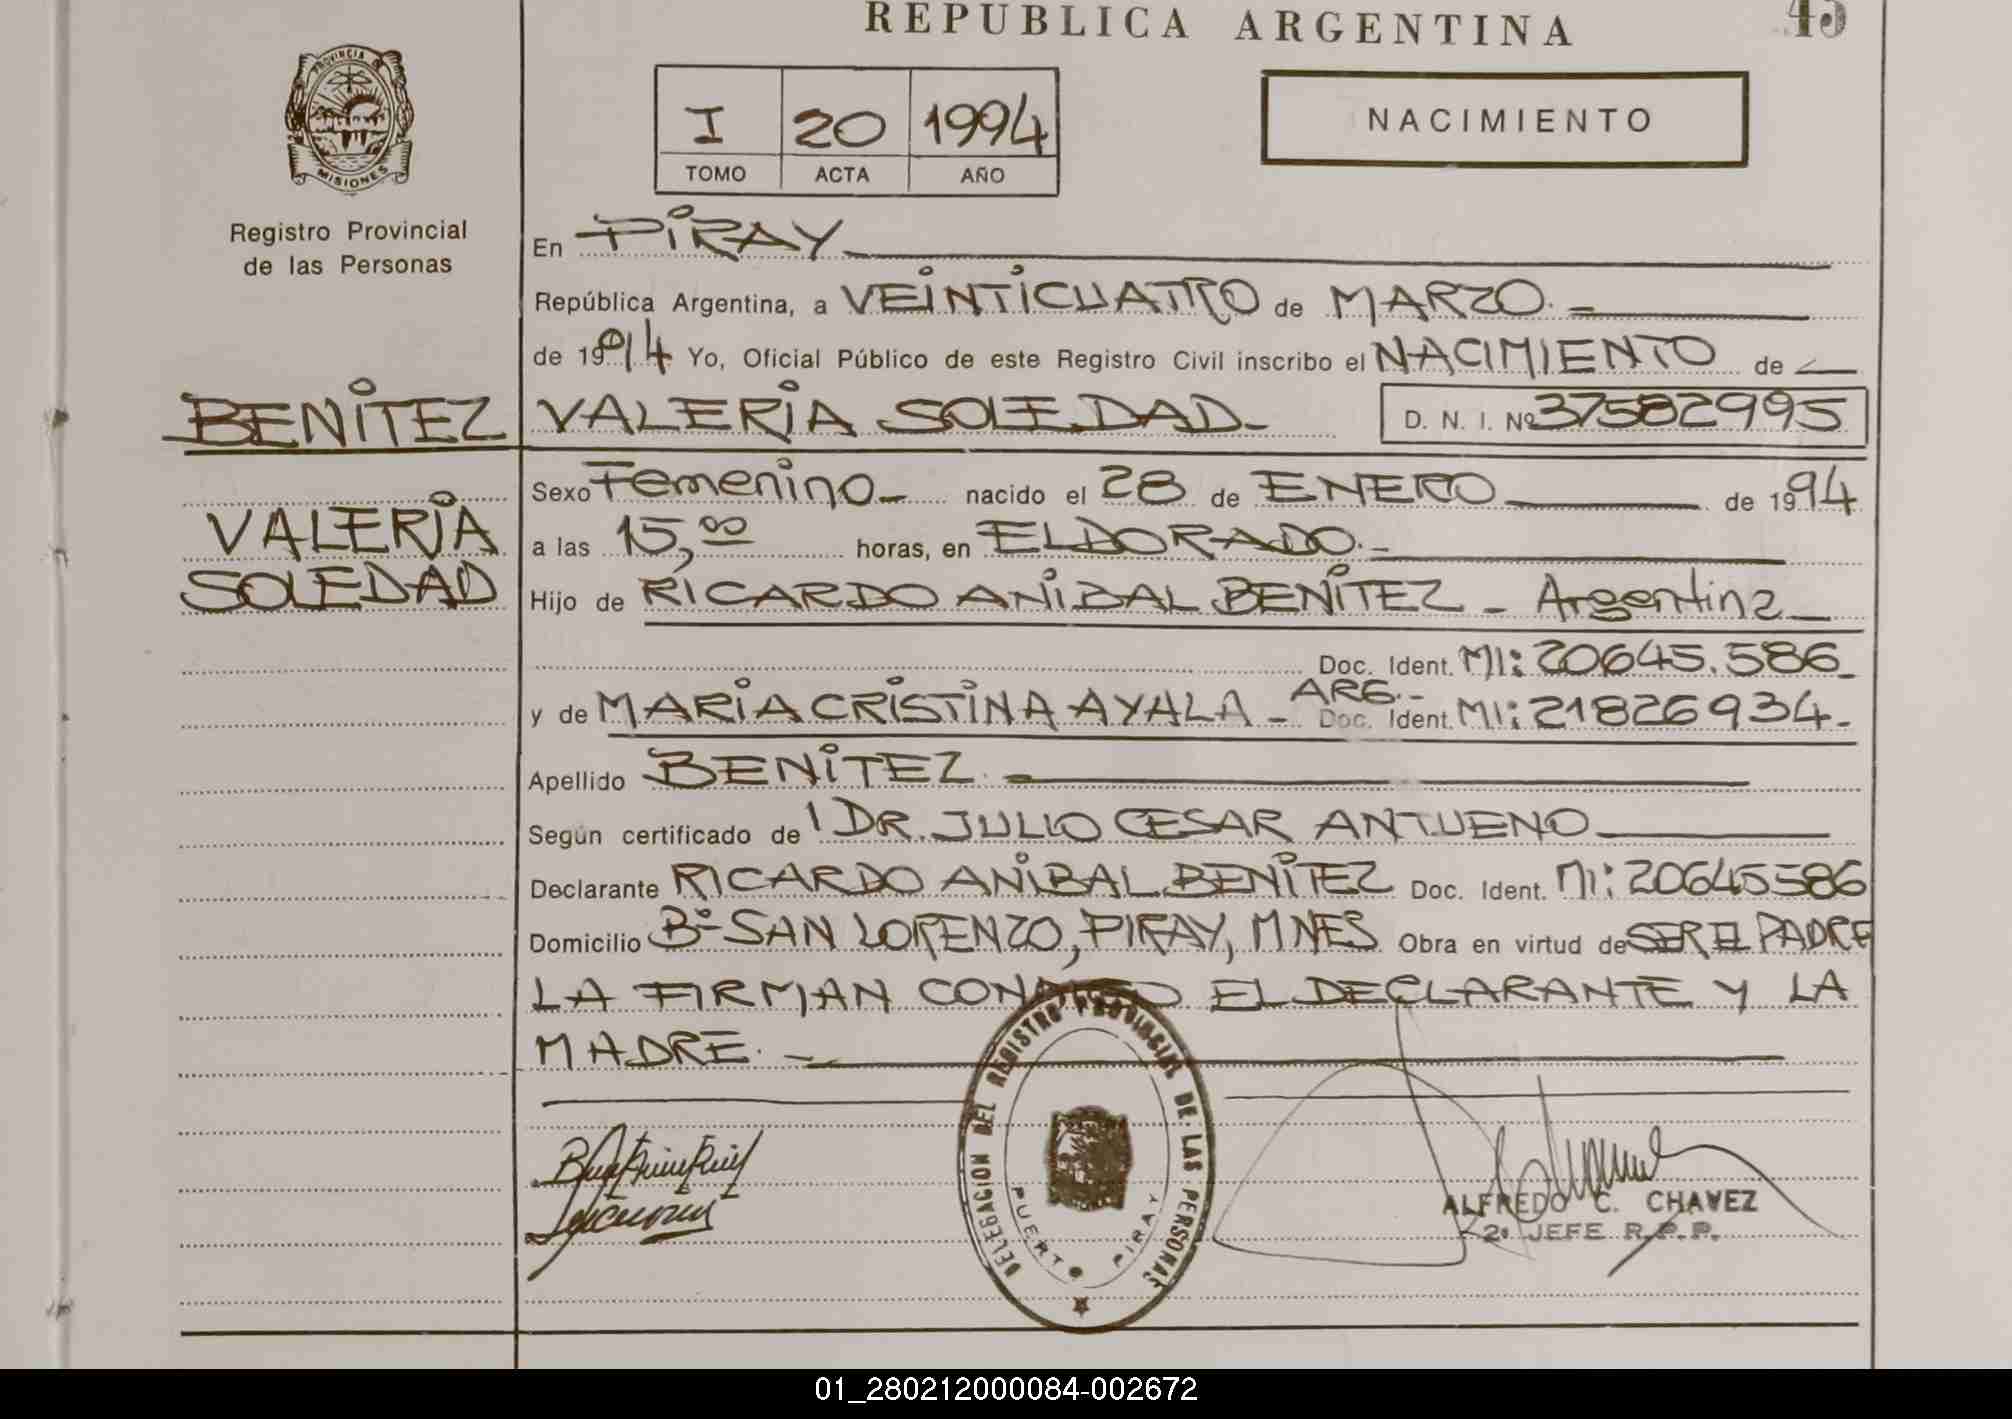 REPUBLICA ARGENTINA
45
PROVINCIA DE MISIONES
Registro Provincial
de las Personas
I 20 1994
TOMO ACTA AÑO
NACIMIENTO
En PIRAY
República Argentina, a VEINTICUATRO de MARZO.
de 1994 Yo, Oficial Público de este Registro Civil inscribo el NACIMIENTO de
BENITEZ VALERIA SOLEDAD D. N. I. Nº 37582995
Sexo Femenino nacido el 28 de ENERO de 1994
VALERIA
a las 15,00 horas, en ELDORADO.
SOLEDAD
Hijo de RICARDO ANIBAL BENITEZ - Argentina
Doc. Ident. MI: 20645.586
y de MARIA CRISTINA AYALA - ARG.- Doc. Ident. MI: 21826934.
Apellido BENITEZ.
Según certificado de DR. JULIO CESAR ANTUENO
Declarante RICARDO ANIBAL BENITEZ Doc. Ident. MI: 20645586
Domicilio Bº SAN LORENZO, PIRAY, MNES Obra en virtud de SER EL PADRE
LA FIRMAN CONMIGO EL DECLARANTE Y LA
MADRE.
DELEGACION DEL REGISTRO PROVINCIAL DE LAS PERSONAS
PUERTO PIRAY
ALFREDO C. CHAVEZ
2º JEFE R.P.P.
01_280212000084-002672